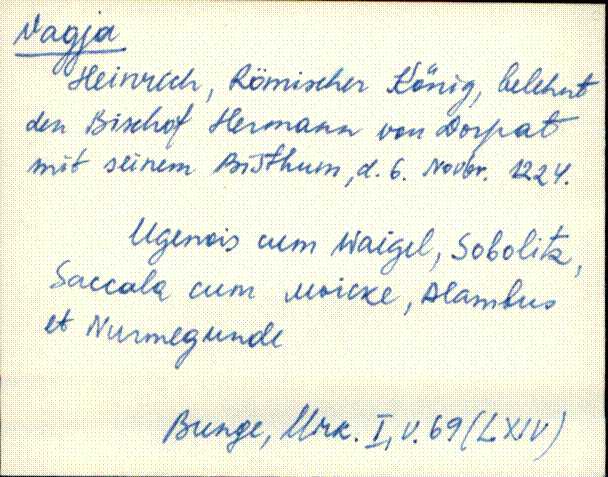 Vagja
Heinrich, Römischer König, belehnt
den Bischof Hermann von Dorpat
mit seinem Bisthum, d. 6. Novbr. 1224.
Ugenois cum Waigel, Sobolitz,
Saccala cum Moicke, Alambus
et Nurmegunde
Bunge, Urk. I, v. 69 (LXIV)